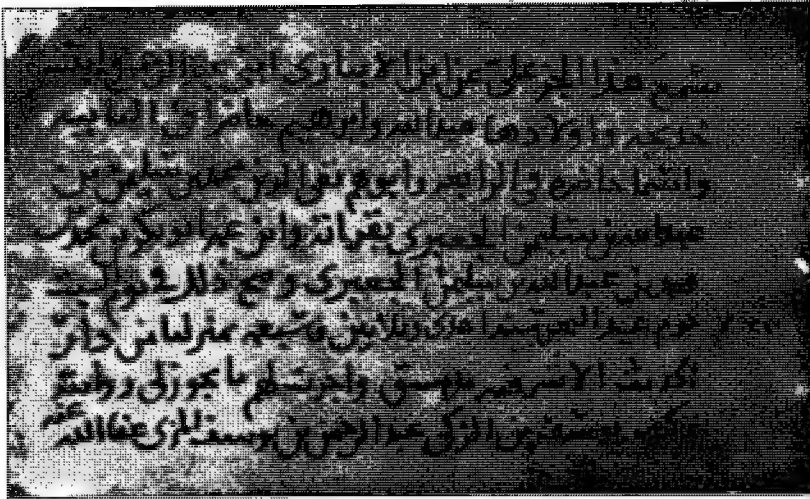 سمع هذا الجزء علي عن ابن الانباري ابني عبد الله وابنته
خديجة واولادها عبد الله وابرهيم حاضرا في الثانية
وانتما حاضرة في الرابعة وابوهم تقي الدين محمد بن سليمن بن
عبد الله بن سليمن الجعبري بقراته وابن عمه ابو بكر بن محمد
بن عبد الله بن سليمن الجعبري وصح ذلك في يوم السبت
يوم عيد سنة احدى وثلاثين وسبعمية بمنزلنا من دار
الحديث الاشرفية بدمشق واجزت لهم ما يجوز لي روايته
وكتب يوسف بن الزكي عبد الرحمن بن يوسف المزي عفا الله
عنه